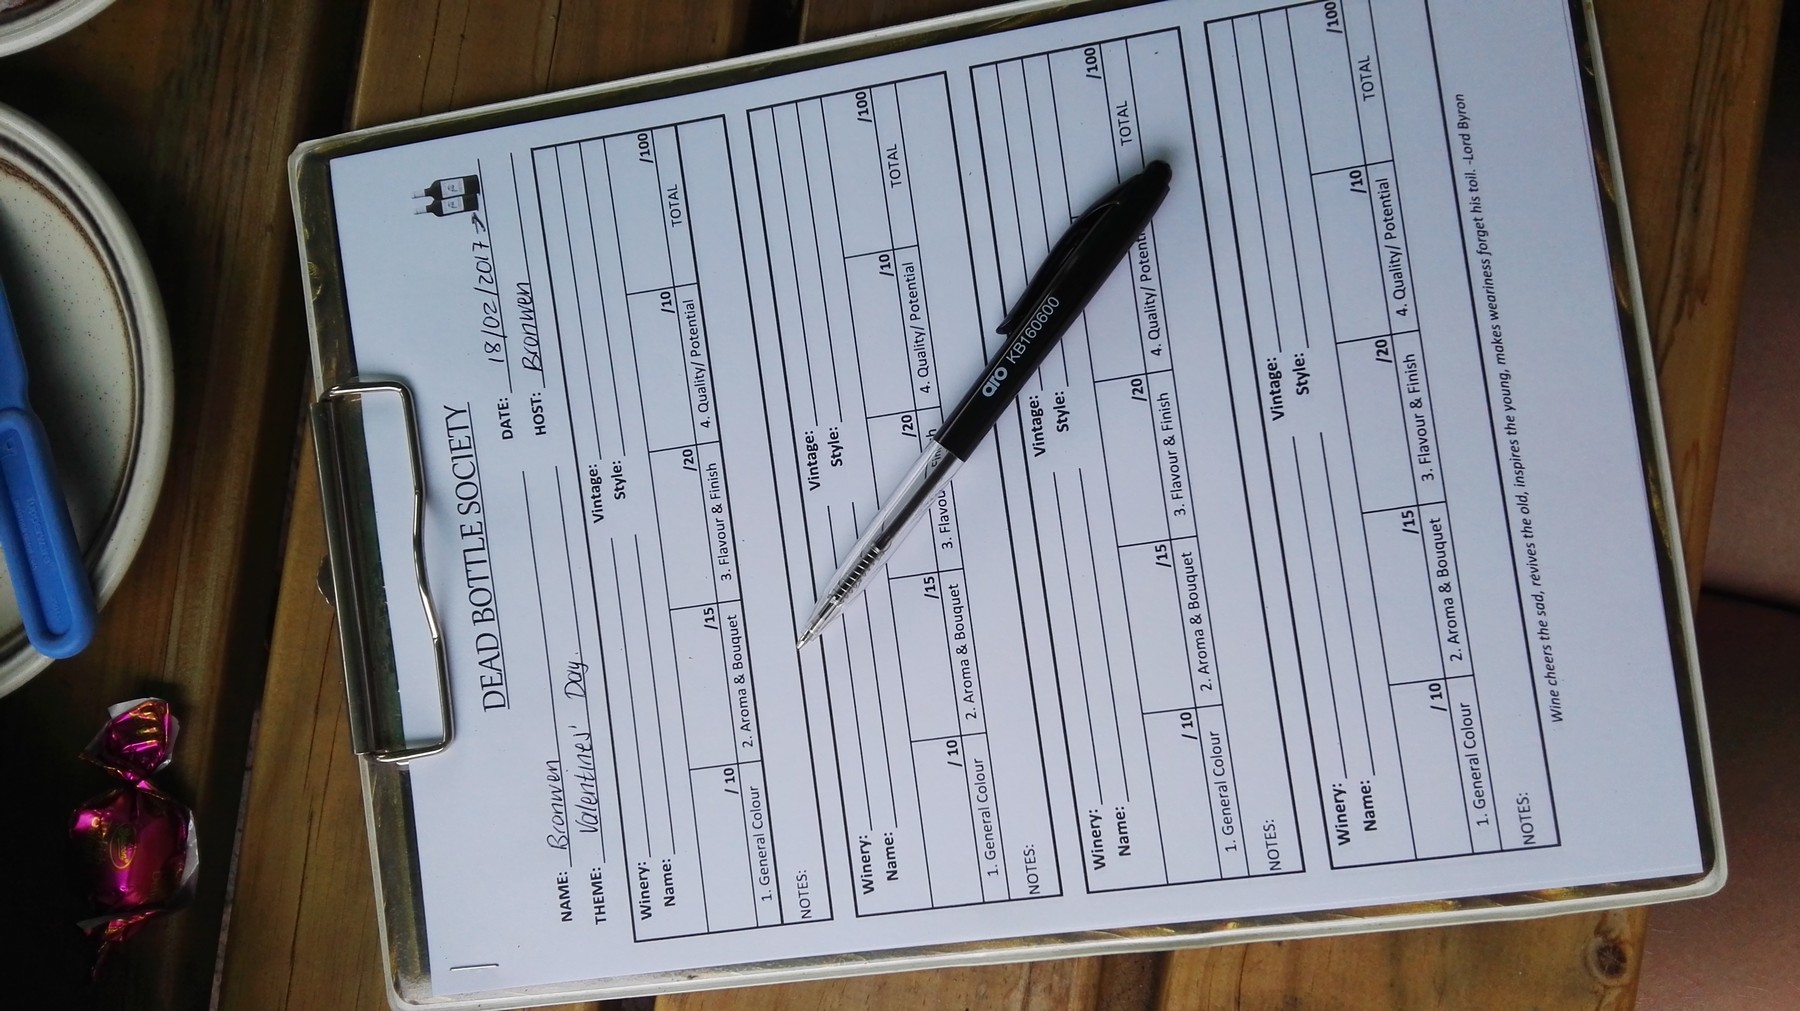 DEAD BOTTLE SOCIETY
NAME: Bronwen DATE: 18/02/2017
THEME: Valentines' Day. HOST: Bronwen
Winery: Vintage:
Name: Style:
/ 10 /15 /20 /10 /100
1. General Colour 2. Aroma & Bouquet 3. Flavour & Finish 4. Quality/ Potential TOTAL
NOTES:
Winery: Vintage:
Name: Style:
/ 10 /15 /20 /10 /100
1. General Colour 2. Aroma & Bouquet 3. Flavou 4. Quality/ Potential TOTAL
NOTES:
Winery: Vintage:
Name: Style:
/ 10 /15 /20 /100
1. General Colour 2. Aroma & Bouquet 3. Flavour & Finish 4. Quality/ Potenti TOTAL
NOTES:
Winery: Vintage:
Name: Style:
/ 10 /15 /20 /10 /100
1. General Colour 2. Aroma & Bouquet 3. Flavour & Finish 4. Quality/ Potential TOTAL
NOTES:
Wine cheers the sad, revives the old, inspires the young, makes weariness forget his toil. -Lord Byron
aro KB160600